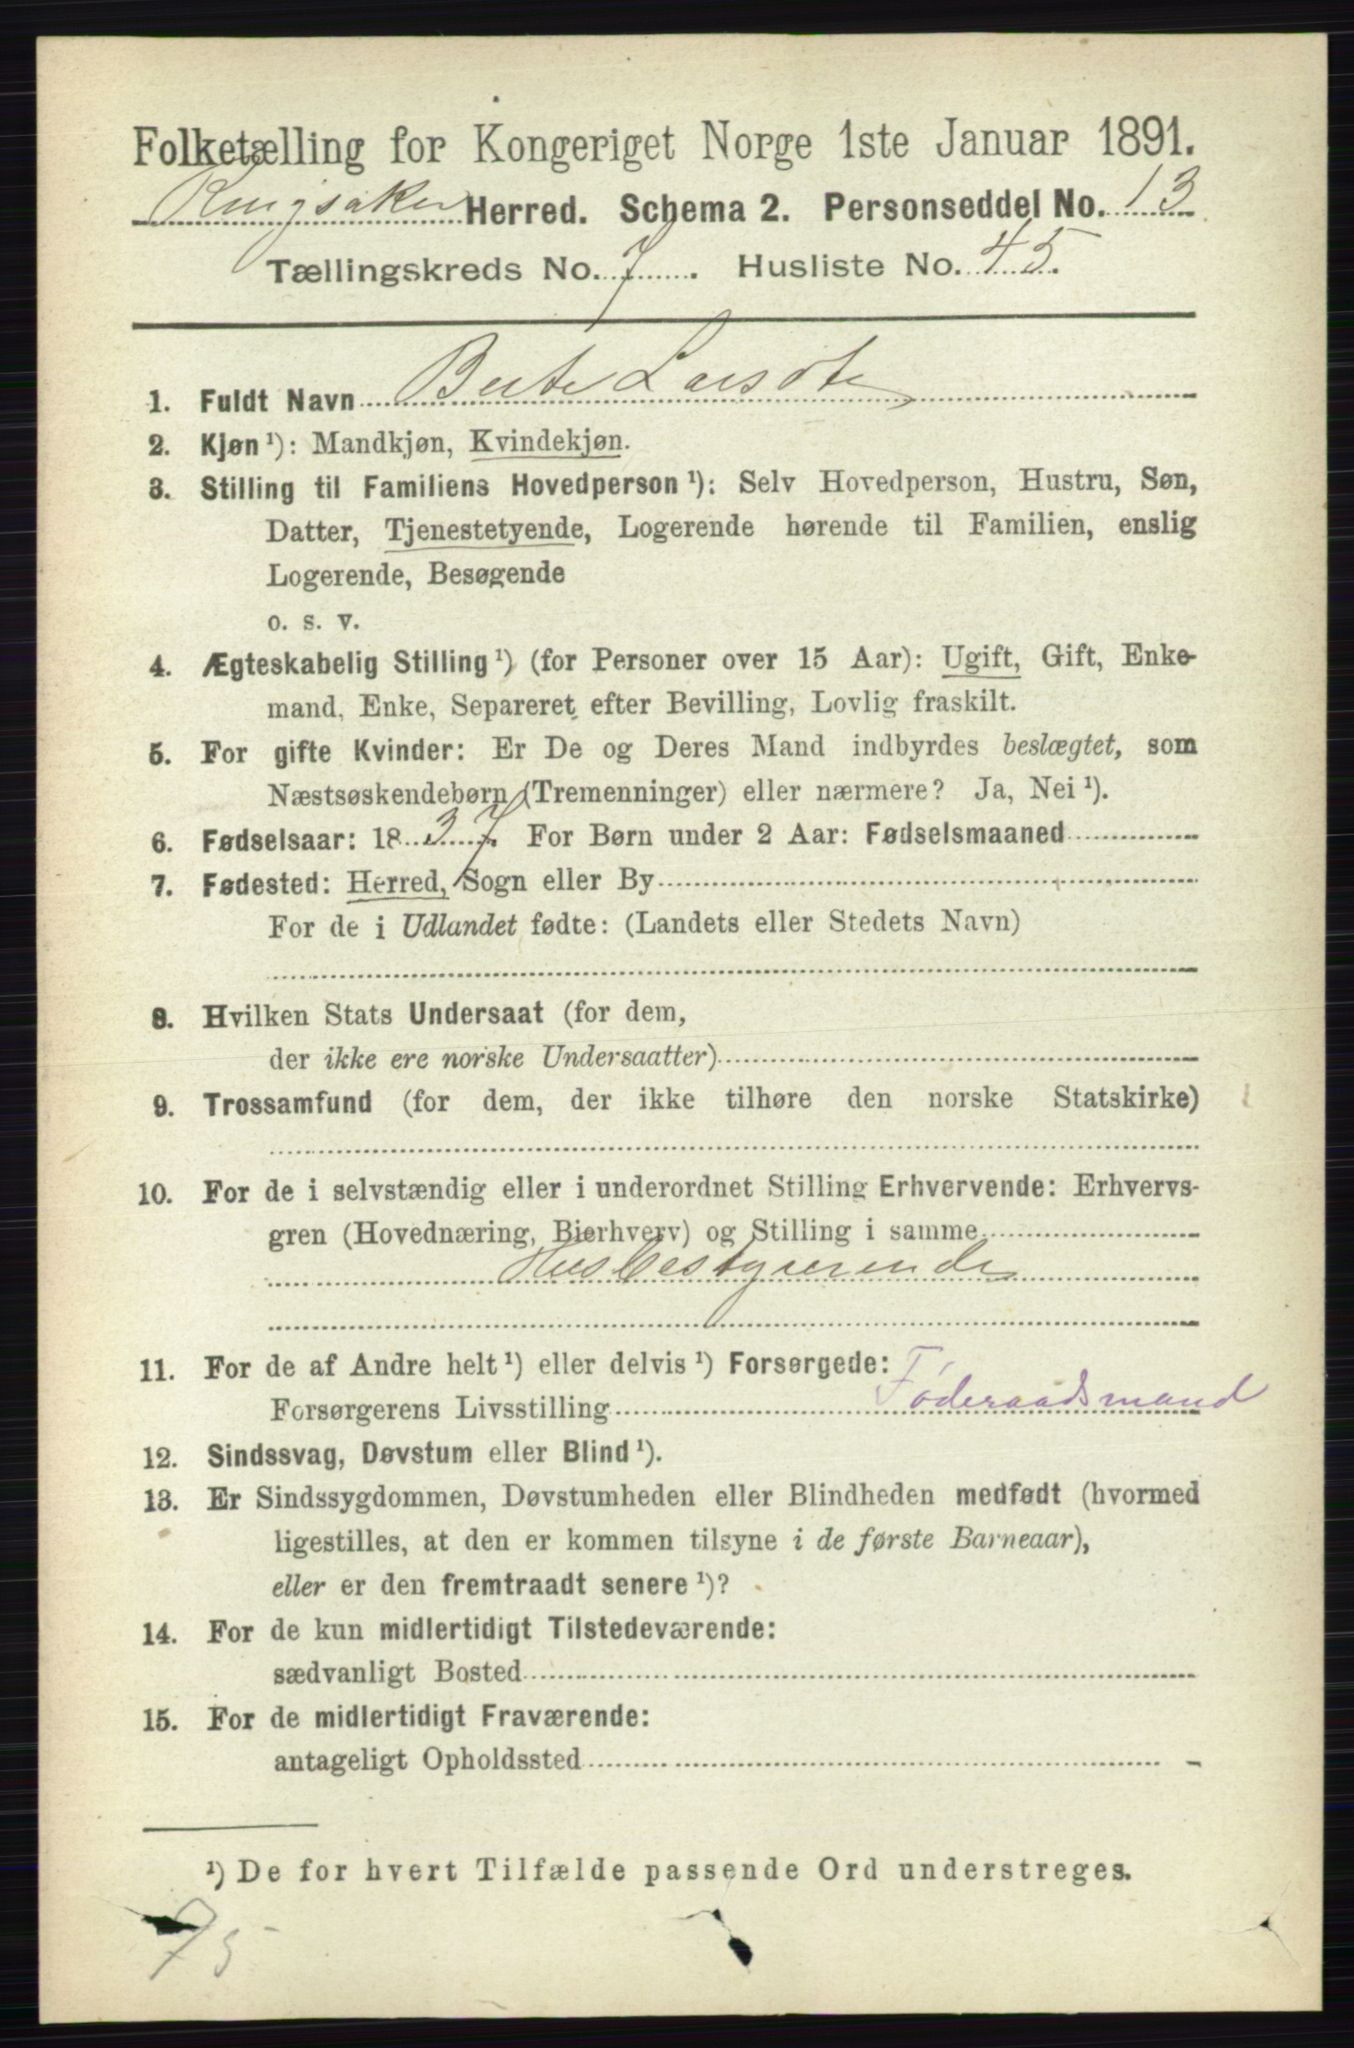 Folketælling for Kongeriget Norge 1ste Januar 1891.
Ringsaker Herred. Schema 2. Personseddel No. 13
Tællingskreds No. 7. Husliste No. 45.
1. Fuldt Navn Berte Larsdtr
2. Kjøn¹): Mandkjøn, Kvindekjøn.
3. Stilling til Familiens Hovedperson¹): Selv Hovedperson, Hustru, Søn,
Datter, Tjenestetyende, Logerende hørende til Familien, enslig
Logerende, Besøgende
o. s. v.
4. Ægteskabelig Stilling¹) (for Personer over 15 Aar): Ugift, Gift, Enke-
mand, Enke, Separeret efter Bevilling, Lovlig fraskilt.
5. For gifte Kvinder: Er De og Deres Mand indbyrdes beslægtet, som
Næstsøskendebørn (Tremenninger) eller nærmere? Ja, Nei¹).
6. Fødselsaar: 1837. For Børn under 2 Aar: Fødselsmaaned
7. Fødested: Herred, Sogn eller By
For de i Udlandet fødte: (Landets eller Stedets Navn)
8. Hvilken Stats Undersaat (for dem,
der ikke ere norske Undersaatter)
9. Trossamfund (for dem, der ikke tilhøre den norske Statskirke)
10. For de i selvstændig eller i underordnet Stilling Erhvervende: Erhvervs-
gren (Hovednæring, Bierhverv) og Stilling i samme
Husbestyrerende
11. For de af Andre helt¹) eller delvis¹) Forsørgede:
Forsørgerens Livsstilling Føderaadsmand
12. Sindssvag, Døvstum eller Blind¹).
13. Er Sindssygdommen, Døvstumheden eller Blindheden medfødt (hvormed
ligestilles, at den er kommen tilsyne i de første Barneaar),
eller er den fremtraadt senere¹)?
14. For de kun midlertidigt Tilstedeværende:
sædvanligt Bosted
15. For de midlertidigt Fraværende:
antageligt Opholdssted
¹) De for hvert Tilfælde passende Ord understreges.
75